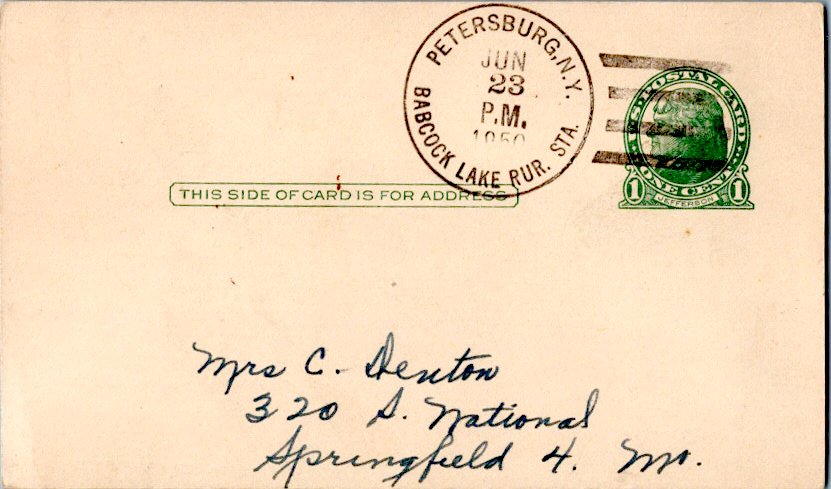 PETERSBURG, N.Y.
JUN
23
P.M.
1950
BABCOCK LAKE RUR. STA.
U.S. POSTAL CARD
ONE CENT
1 JEFFERSON 1
THIS SIDE OF CARD IS FOR ADDRESS
Mrs C. Denton
320 S. National
Springfield 4. Mo.